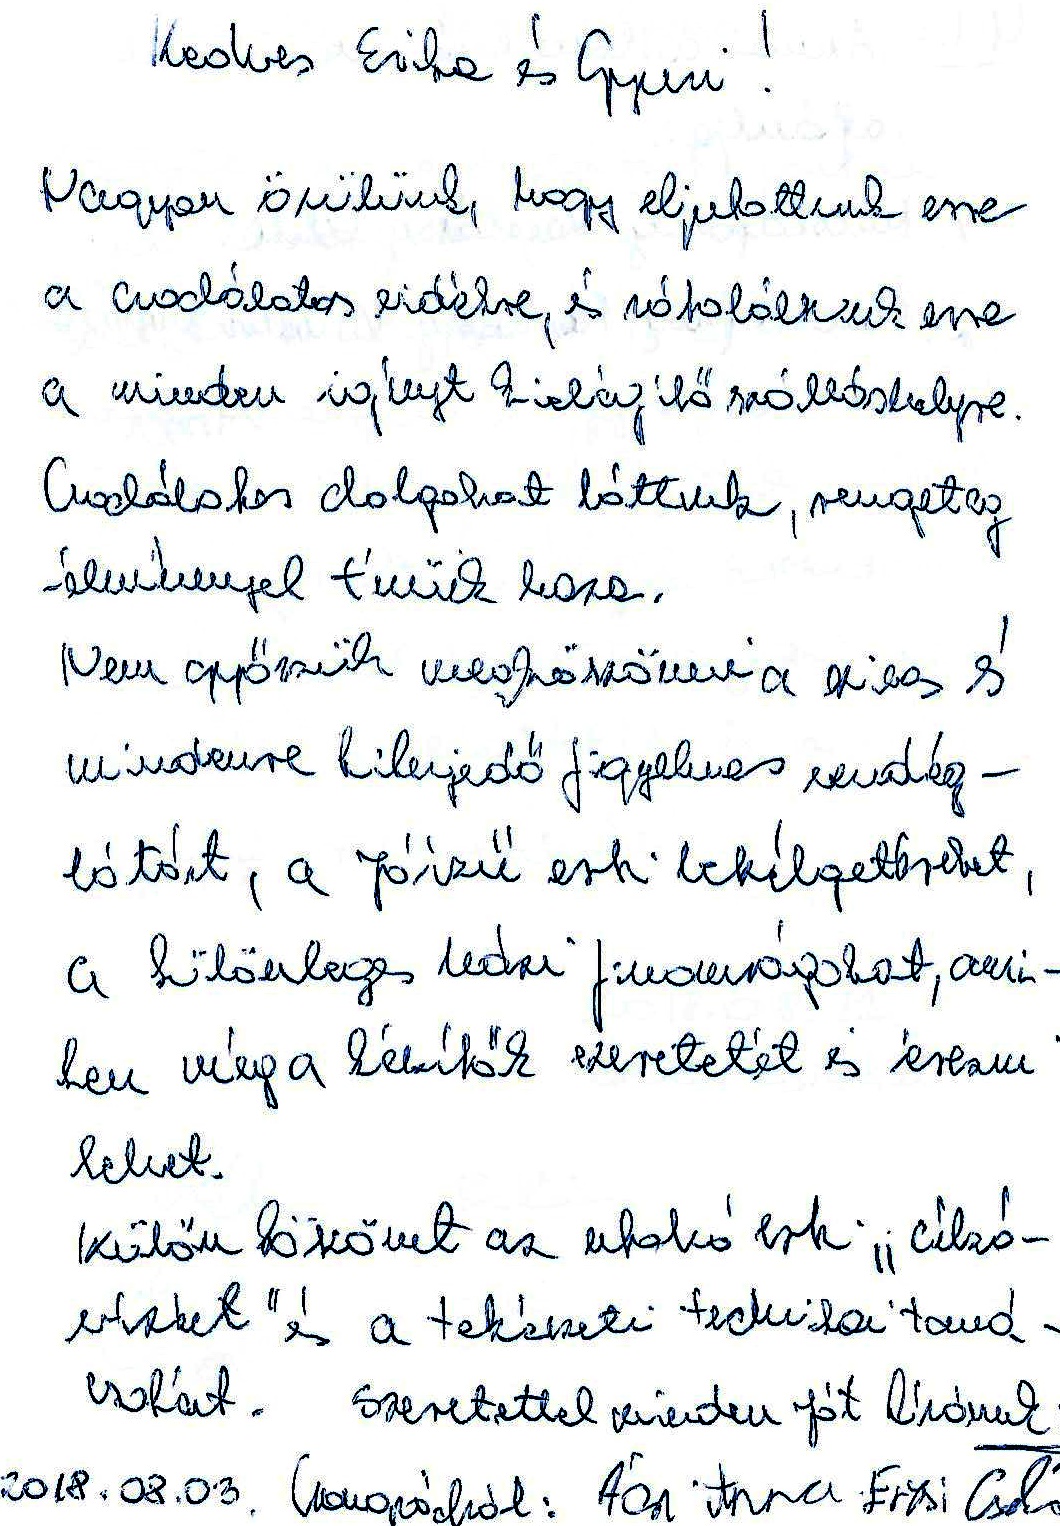 Kedves Erika és Gyuri!
Nagyon örülünk, hogy eljutottunk erre
a csodálatos vidékre, és rátaláltunk erre
a minden igényt kielégítő szálláshelyre.
Csodálatos dolgokat láttunk, rengeteg
élménnyel térünk haza.
Nem győzzük megköszönni a szíves s
mindenre kiterjedő figyelmes vendég-
látást, a jóízű esti beszélgetéseket,
a különleges házi finomságokat, ami-
ben még a készítők szeretetét is érezni
lehet.
Külön köszönet az utolsó esti "
" és a tekézési technikai taná-
csokat. Szeretettel minden jót kívánunk:
2018.08.03. Ági Anna Erzsi